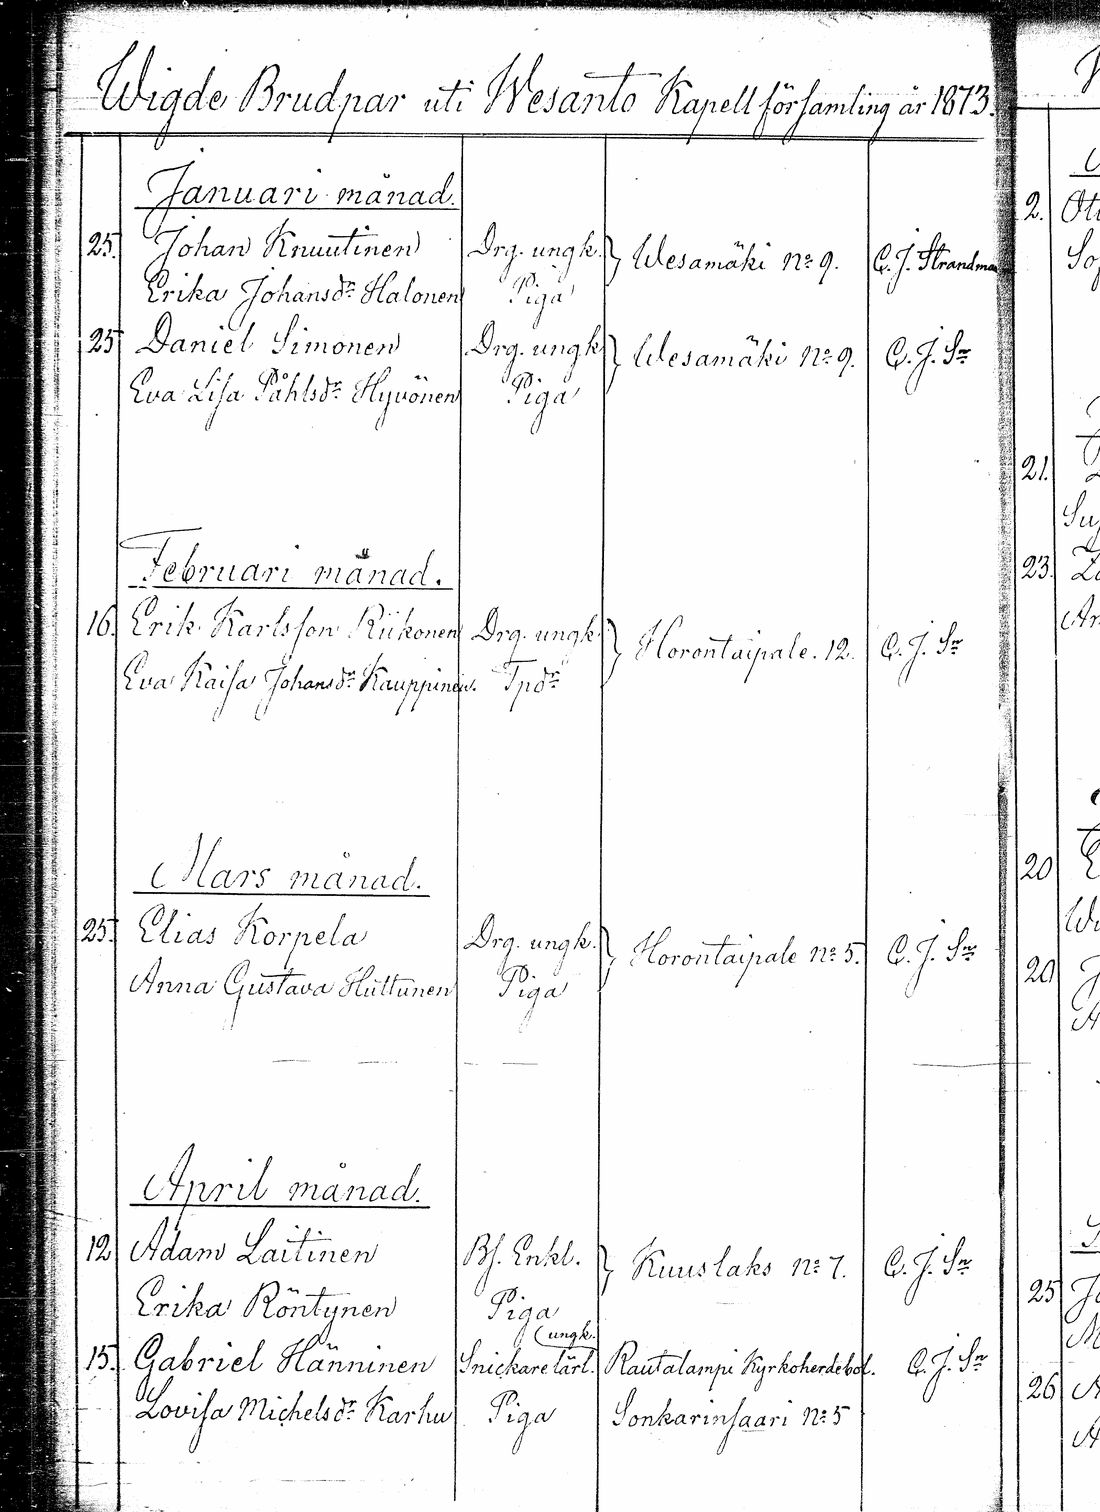 Wigde Brudpar uti Wesanto Kapellförsamling år 1873.
Januari månad.
25. Johan Knuutinen Drg. ungk. } Wesamäki No 9. C. J. Strandman
Erika Johansdr Halonen Piga
25 Daniel Simonen Drg. ungk. } Wesamäki No 9. C. J. Sn
Eva Lisa Påhlsdr Hyvönen Piga
Februari månad.
16. Erik Karlsson Riikonen Drg. ungk. } Horontaipale. 12. C. J. Sn
Eva Kaisa Johansdr Kauppinen. Tpdr
Mars månad.
25. Elias Korpela Drg. ungk. } Horontaipale No 5. C. J. Sn
Anna Gustava Huttunen Piga
April månad.
12 Adam Laitinen Bs. Enkl. } Kuuslaks No 7. C. J. Sn
Erika Röntynen Piga
(ungk.
15. Gabriel Hänninen Snickare lärl. Rautalampi Kyrkoherdebol. C. J. Sn
Lovisa Michelsdr Karhu Piga Sonkarinsaari No 5
2.
21.
23.
20
20
25
26